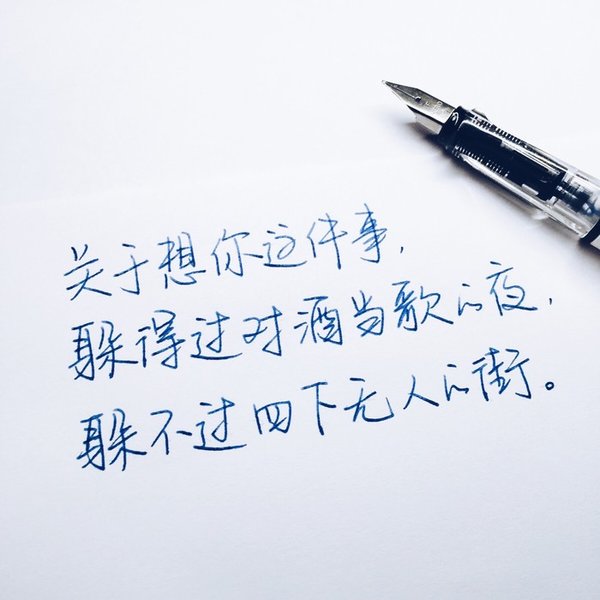 关于想你这件事,
躲得过对酒当歌的夜,
躲不过四下无人的街。